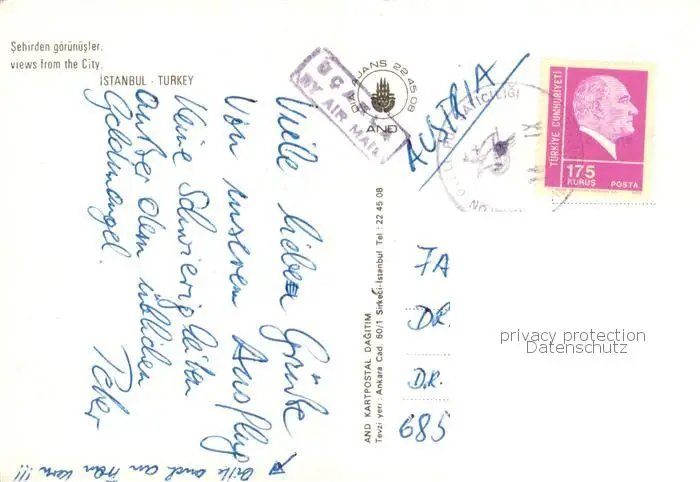 Şehirden görünüşler.
views from the City.
İSTANBUL - TURKEY
UÇAKLA
BY AIR MAIL
AJANS 22 45 08
AND
AUSTRIA
TÜRKİYE CUMHURİYETİ
175
KURUŞ POSTA
Viele lieben Grüße
von unserem Ausflug
Keine Schwierigkeiten
außer dem üblichen
Geldmangel.
Peter
Bitte auch an
!!!
AND KARTPOSTAL DAĞITIM
Tevzi yeri: Ankara Cad. 60/1 Sirkeci-İstanbul Tel: 22 45 08
FA
DR.
DR.
685
privacy protection
Datenschutz